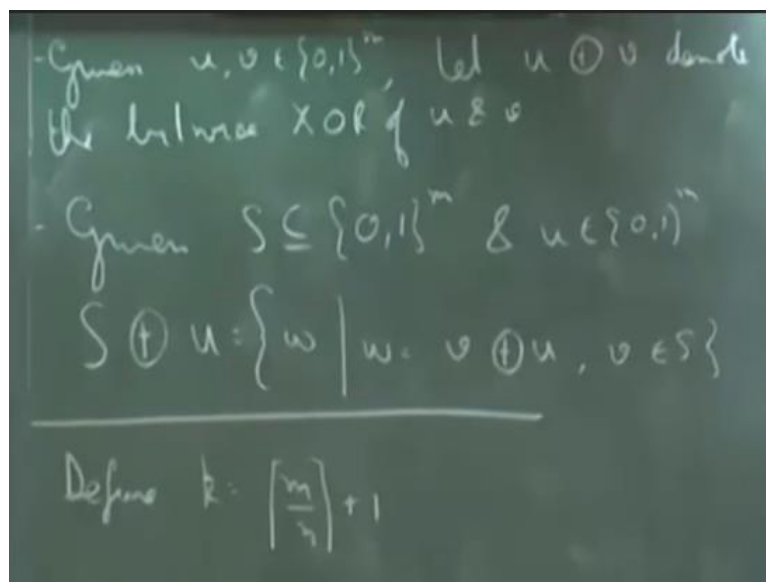 - Given u, v ∈ {0,1}^m, let u ⊕ v denote
the bitwise XOR of u & v
- Given S ⊆ {0,1}^m & u ∈ {0,1}^m
S ⊕ u = { w | w = v ⊕ u, v ∈ S }
Define k = ⌈m/n⌉ + 1